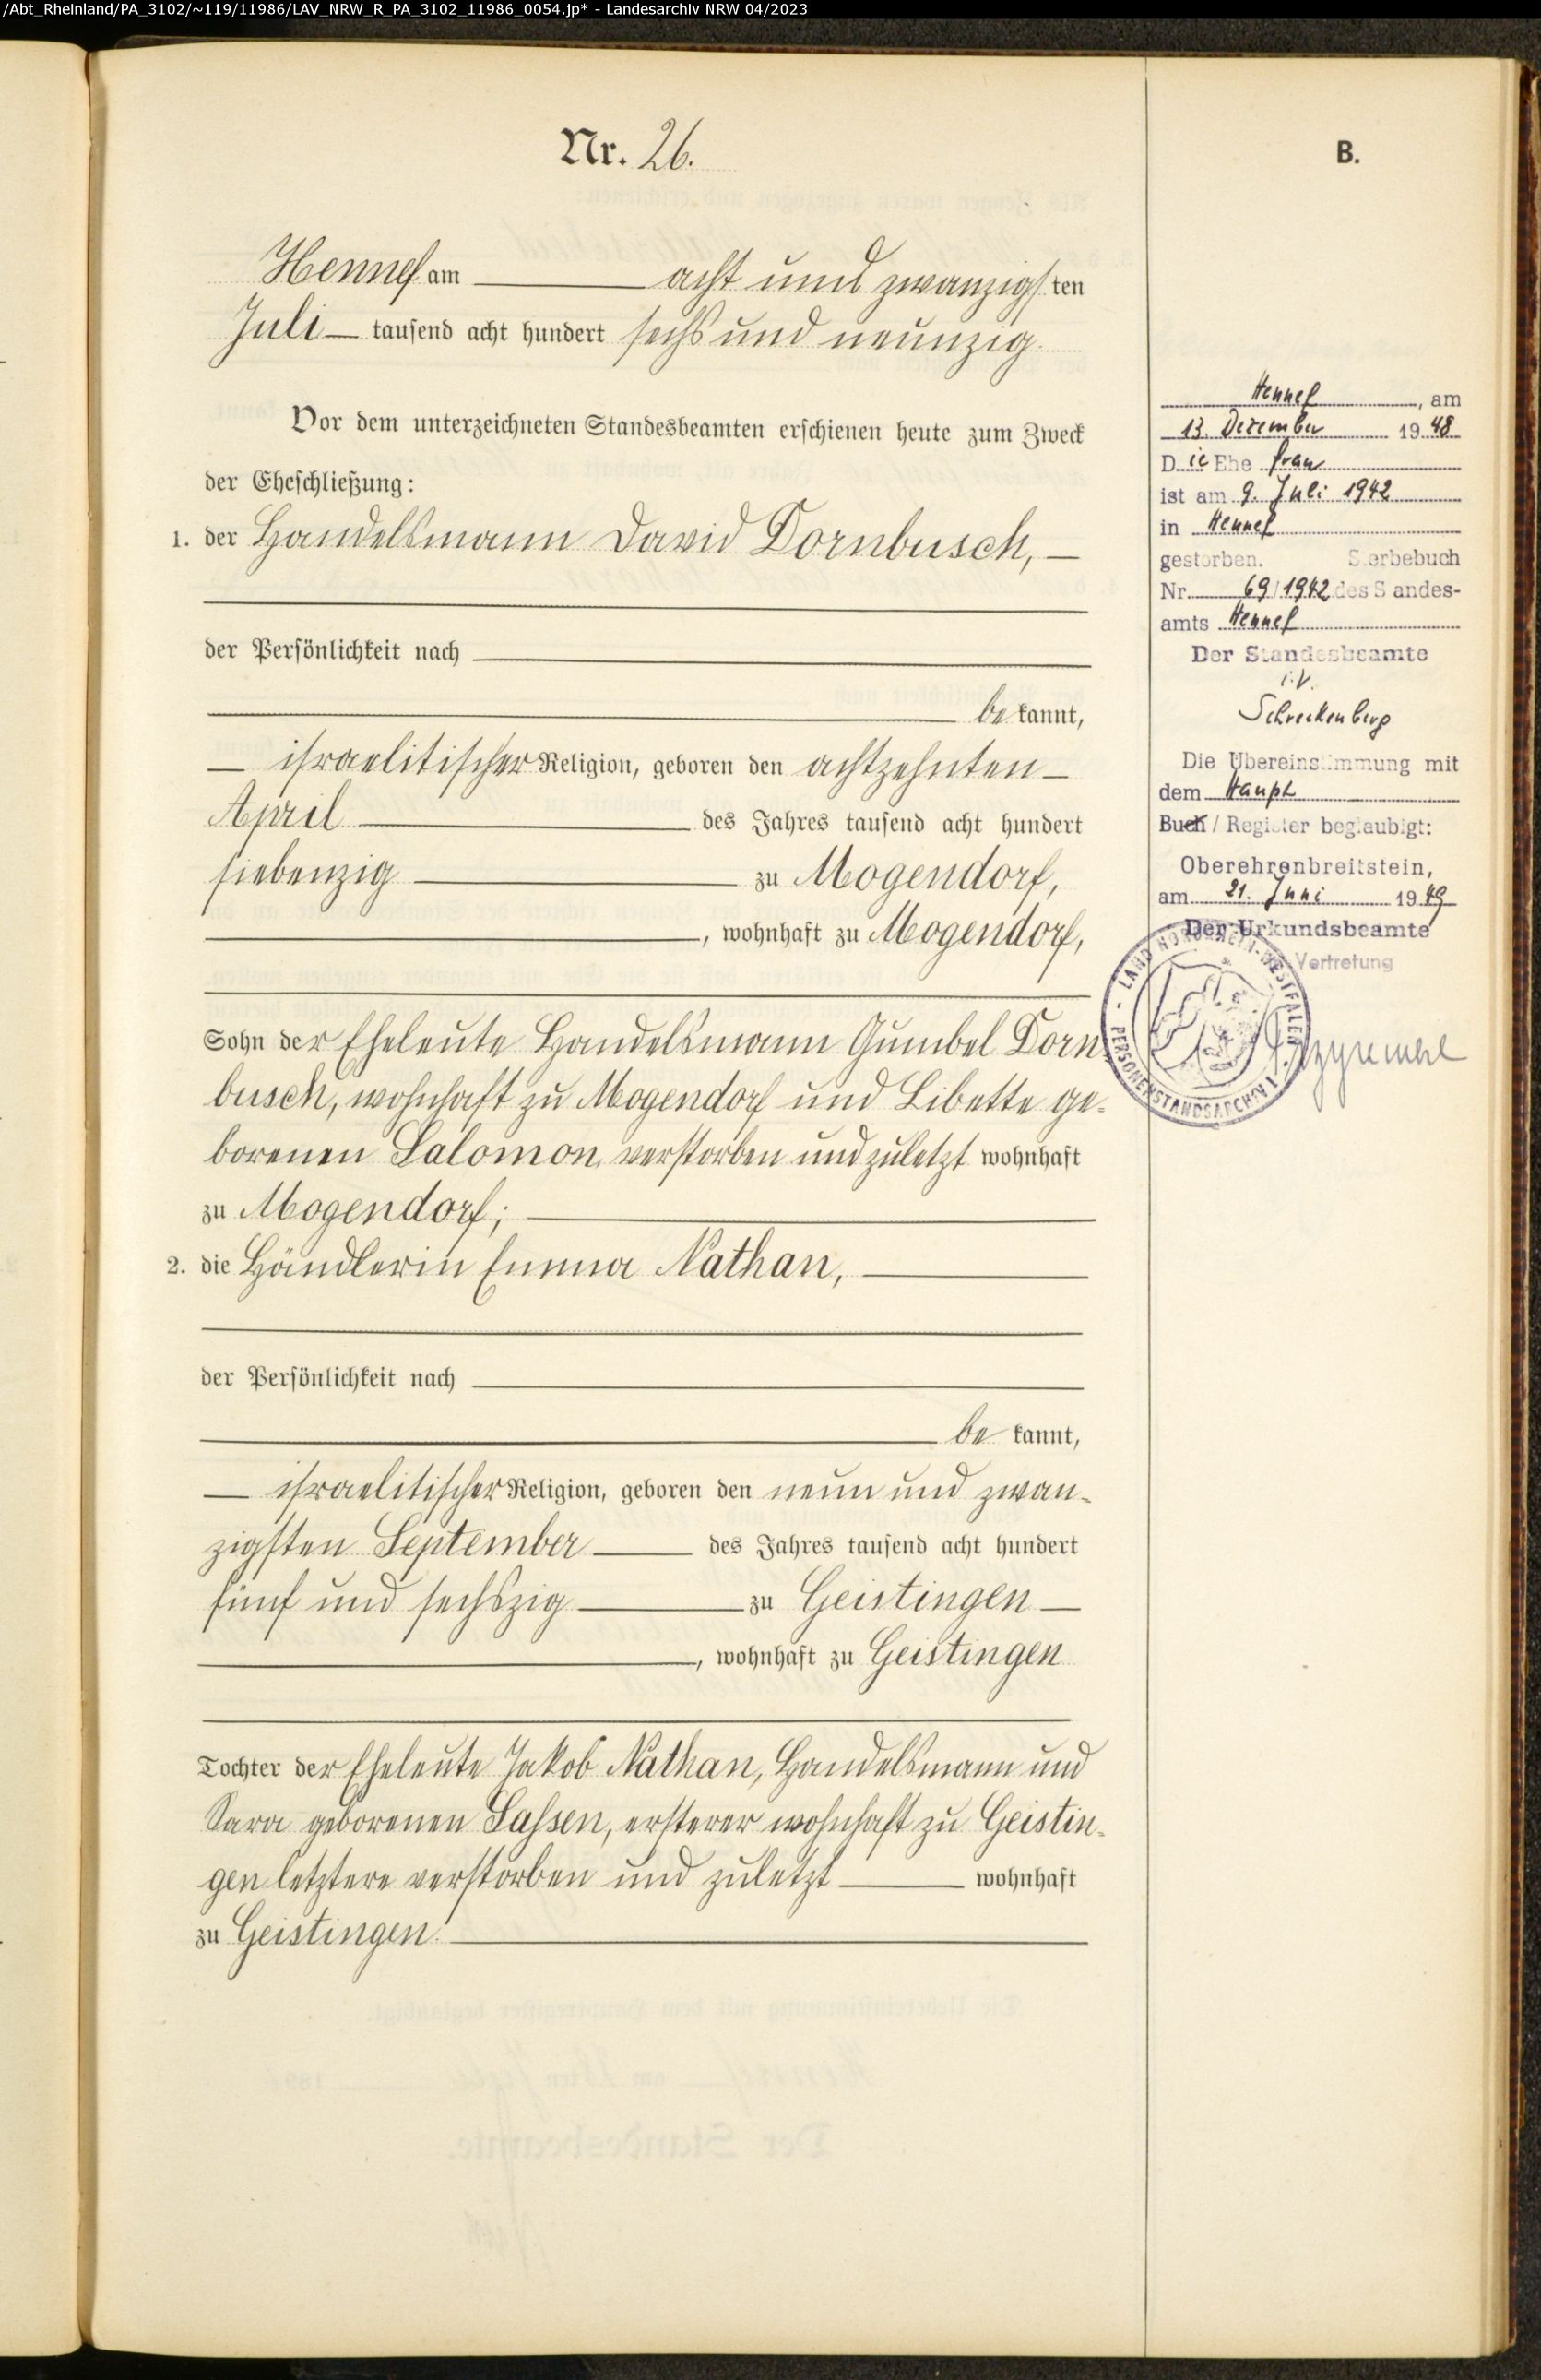 /Abt_Rheinland/PA_3102/~119/11986/LAV_NRW_R_PA_3102_11986_0054.jp* - Landesarchiv NRW 04/2023
Nr. 26.
B.
Hennef am acht und zwanzigsten
Juli tausend acht hundert sechs und neunzig.
Vor dem unterzeichneten Standesbeamten erschienen heute zum Zweck
der Eheschließung:
1. der Handelsmann David Dornbusch,
der Persönlichkeit nach
be kannt,
israelitischer Religion, geboren den achtzehnten
April des Jahres tausend acht hundert
siebenzig zu Mogendorf,
, wohnhaft zu Mogendorf,
Sohn der Eheleute Handelsmann Gumbel Dorn-
busch, wohnhaft zu Mogendorf und Libette ge-
borenen Salomon, verstorben und zuletzt wohnhaft
zu Mogendorf;
2. die Händlerin Emma Nathan,
der Persönlichkeit nach
be kannt,
israelitischer Religion, geboren den neun und zwan-
zigsten September des Jahres tausend acht hundert
fünf und sechszig zu Geistingen
, wohnhaft zu Geistingen
Tochter der Eheleute Jakob Nathan, Handelsmann und
Sara geborenen Sassen, ersterer wohnhaft zu Geistin-
gen letztere verstorben und zuletzt wohnhaft
zu Geistingen.
Hennef, am
13. Dezember 1948
Die Ehe frau
ist am 9. Juli 1942
in Hennef
gestorben. Sterbebuch
Nr. 69/1942 des Standes-
amts Hennef
Der Standesbeamte
i.V.
Schreckenberg
Die Übereinstimmung mit
dem Haupt
Buch / Register beglaubigt:
Oberehrenbreitstein,
am 21. Juni 1949
Der Urkundsbeamte
Vertretung
LAND NORDRHEIN-WESTFALEN
PERSONENSTANDSARCHIV I